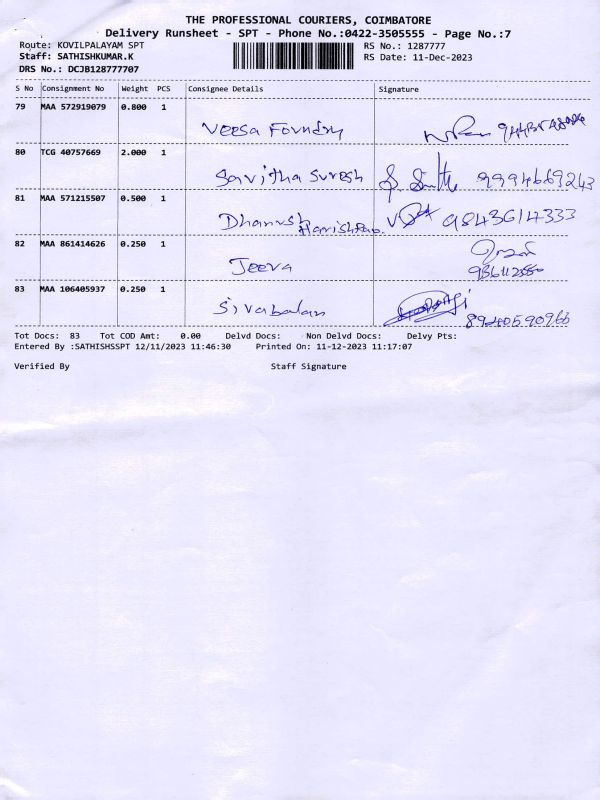 THE PROFESSIONAL COURIERS, COIMBATORE
Delivery Runsheet - SPT - Phone No.:0422-3505555 - Page No.:7
Route: KOVILPALAYAM SPT RS No.: 1287777
Staff: SATHISHKUMAR.K RS Date: 11-Dec-2023
DRS No.: DCJB128777707
S No Consignment No Weight PCS Consignee Details Signature
79 MAA 572919079 0.800 1
Veesa Foundry
80 TCG 40757669 2.000 1
Savitha Suresh 9994669243
81 MAA 571215507 0.500 1
Dhanush Harish 9843614333
82 MAA 861414626 0.250 1
Jeeva
83 MAA 106405937 0.250 1
Sivabalan 8940590966
Tot Docs: 83 Tot COD Amt: 0.00 Delvd Docs: Non Delvd Docs: Delvy Pts:
Entered By :SATHISHSSPT 12/11/2023 11:46:30 Printed On: 11-12-2023 11:17:07
Verified By Staff Signature